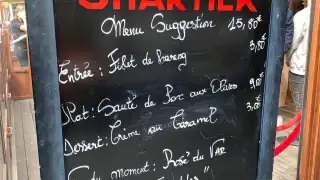 CHARTIER
Menu Suggestion 15,80€
Entrée : Filet de hareng 3,80€
Plat : Sauté de Porc aux Olives 9,00€
Dessert : Crème au Caramel 3,00€
du moment : Rosé du VAR